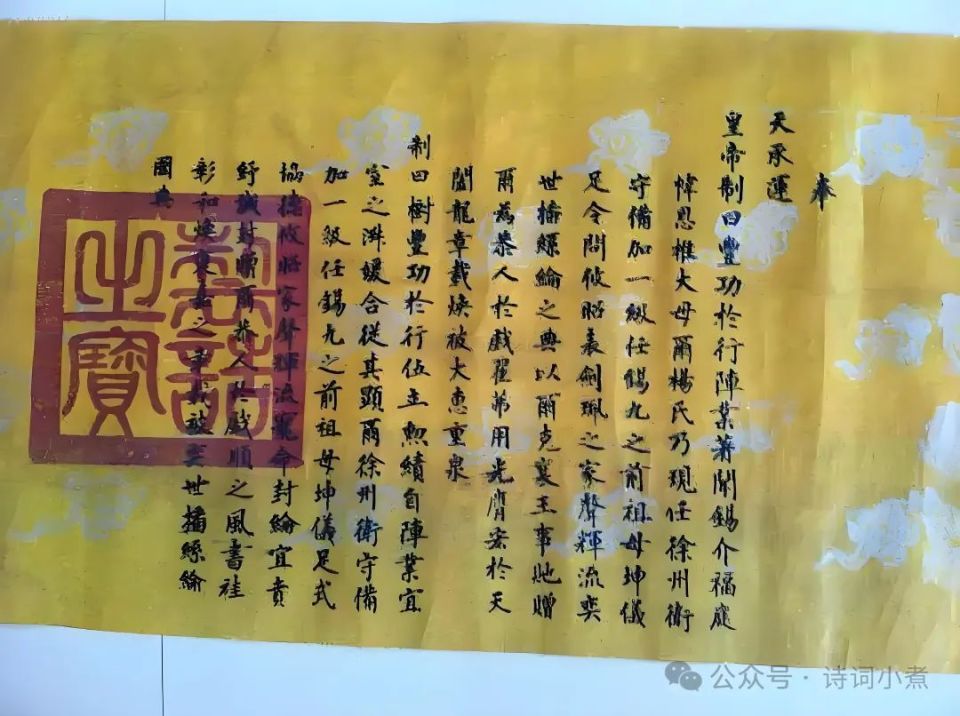 奉
天承運
皇帝制曰豐功於行陣業著閫錫介福庭
幃恩推大母爾楊氏乃現任徐州衛
守備加一級任錫九之前祖母坤儀
足令問攸昭表劍珮之家聲輝流奕
世播絲綸之典以爾克襄王事貤贈
爾為恭人於戲翟茀用光膺宏於天
閶龍章載煥被大惠重泉
制曰樹豐功於行伍立勲績自陣業宜
室之淋媛合從其顕爾徐州衛守備
加一級任錫九之前祖母坤儀足式
協德攸昭家聲輝流寵命封綸宜賁
紓誠封贈爾恭人於戲順之風書袿
彰和煥襄嘉之被奕世播絲綸
國典
敕誥之寶
公众号·诗词小煮